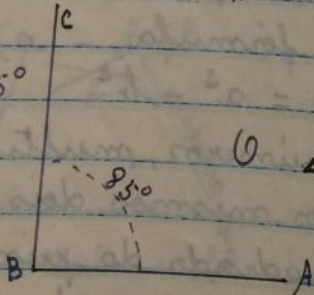 C
5°
85°
B
A